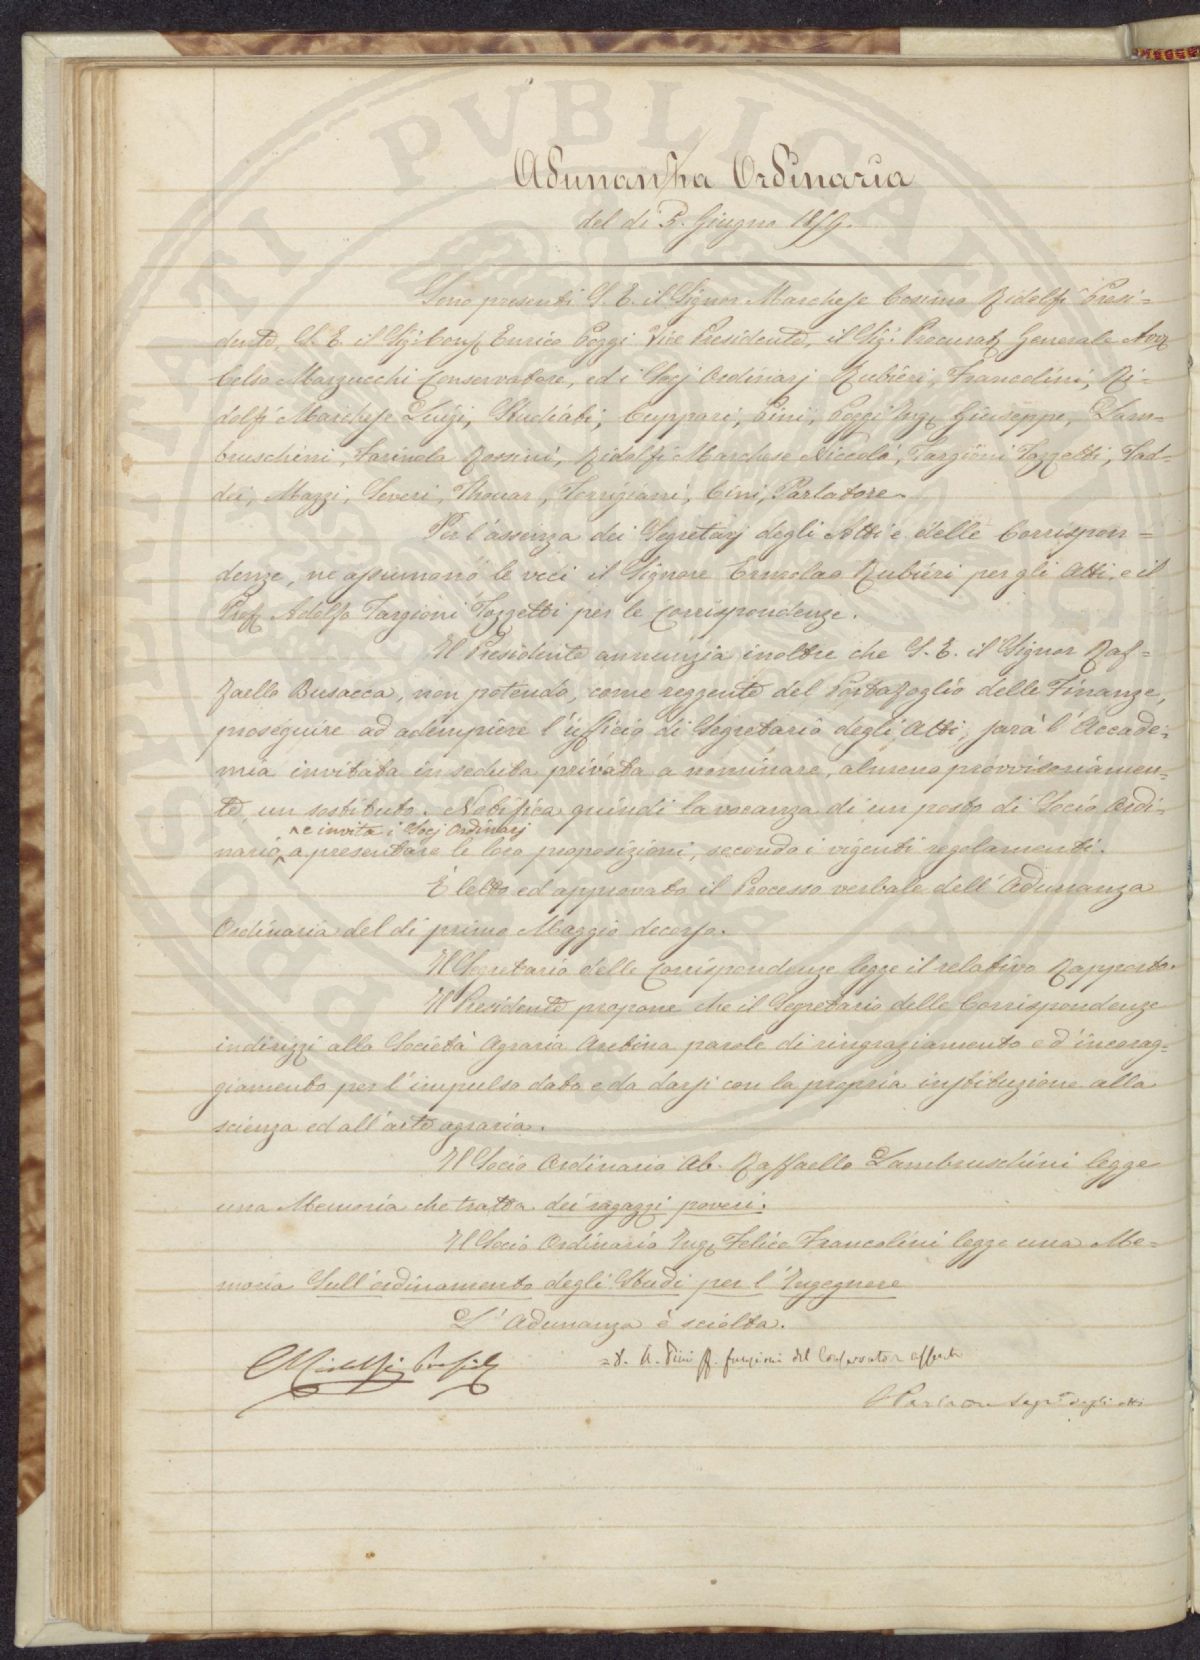 Adunanza Ordinaria
del dì 5. Giugno 1859.
Sono presenti S. E. il Signor Marchese Cosimo Ridolfi Presi=
dente, S. E. il Sig: Conse Enrico Poggi Vice Presidente, il Sig: Procurate Generale Avve
Celso Marzucchi Conservatore, ed i Socj Ordinarj Rubieri, Francolini, Ri=
dolfi Marchese Luigi, Studiati, Cuppari, Pini, Poggi Inge Giuseppe, Lam=
bruschini, Farinola Rossini, Ridolfi Marchese Niccolò, Targioni Tozzetti, Tad=
dei, Mazzi, Severi, Thouar, Torrigiani, Cini, Parlatore.
Per l'assenza dei Segretarj degli Atti e delle Corrispon=
denze, ne assumono le veci il Signore Ermolao Rubieri per gli Atti, e il
Profe Adolfo Targioni Tozzetti per le Corrispondenze.
Il Presidente annunzia inoltre che S. E. il Signor Raf=
faello Busacca, non potendo, come reggente del Portafoglio delle Finanze,
proseguire ad adempiere l'ufficio di Segretario degli Atti, sarà l'Accade=
mia invitata in seduta privata a nominare, almeno provvisoriamen=
te un sostituto. Notifica quindi la vacanza di un posto di Socio Ordi=
e invita i Socj Ordinarj
nario, a presentare le loro proposizioni, secondo i vigenti regolamenti.
È letto ed approvato il Processo verbale dell'Adunanza
Ordinaria del dì primo Maggio decorso.
Il Segretario delle Corrispondenze legge il relativo Rapporto.
Il Presidente propone che il Segretario delle Corrispondenze
indirizzi alla Società Agraria Aretina parole di ringraziamento e d'incorag=
giamento per l'impulso dato e da darsi con la propria instituzione alla
scienza ed all'arte agraria.
Il Socio Ordinario Ab. Raffaello Lambruschini legge
una Memoria che tratta dei ragazzi poveri.
Il Socio Ordinario Inge Felice Francolini legge una Me=
moria Sull'ordinamento degli Studi per l'Ingegnere
L'Adunanza è sciolta.
CRidolfi Preside
funzioni del Conservatore
Segr. degli atti